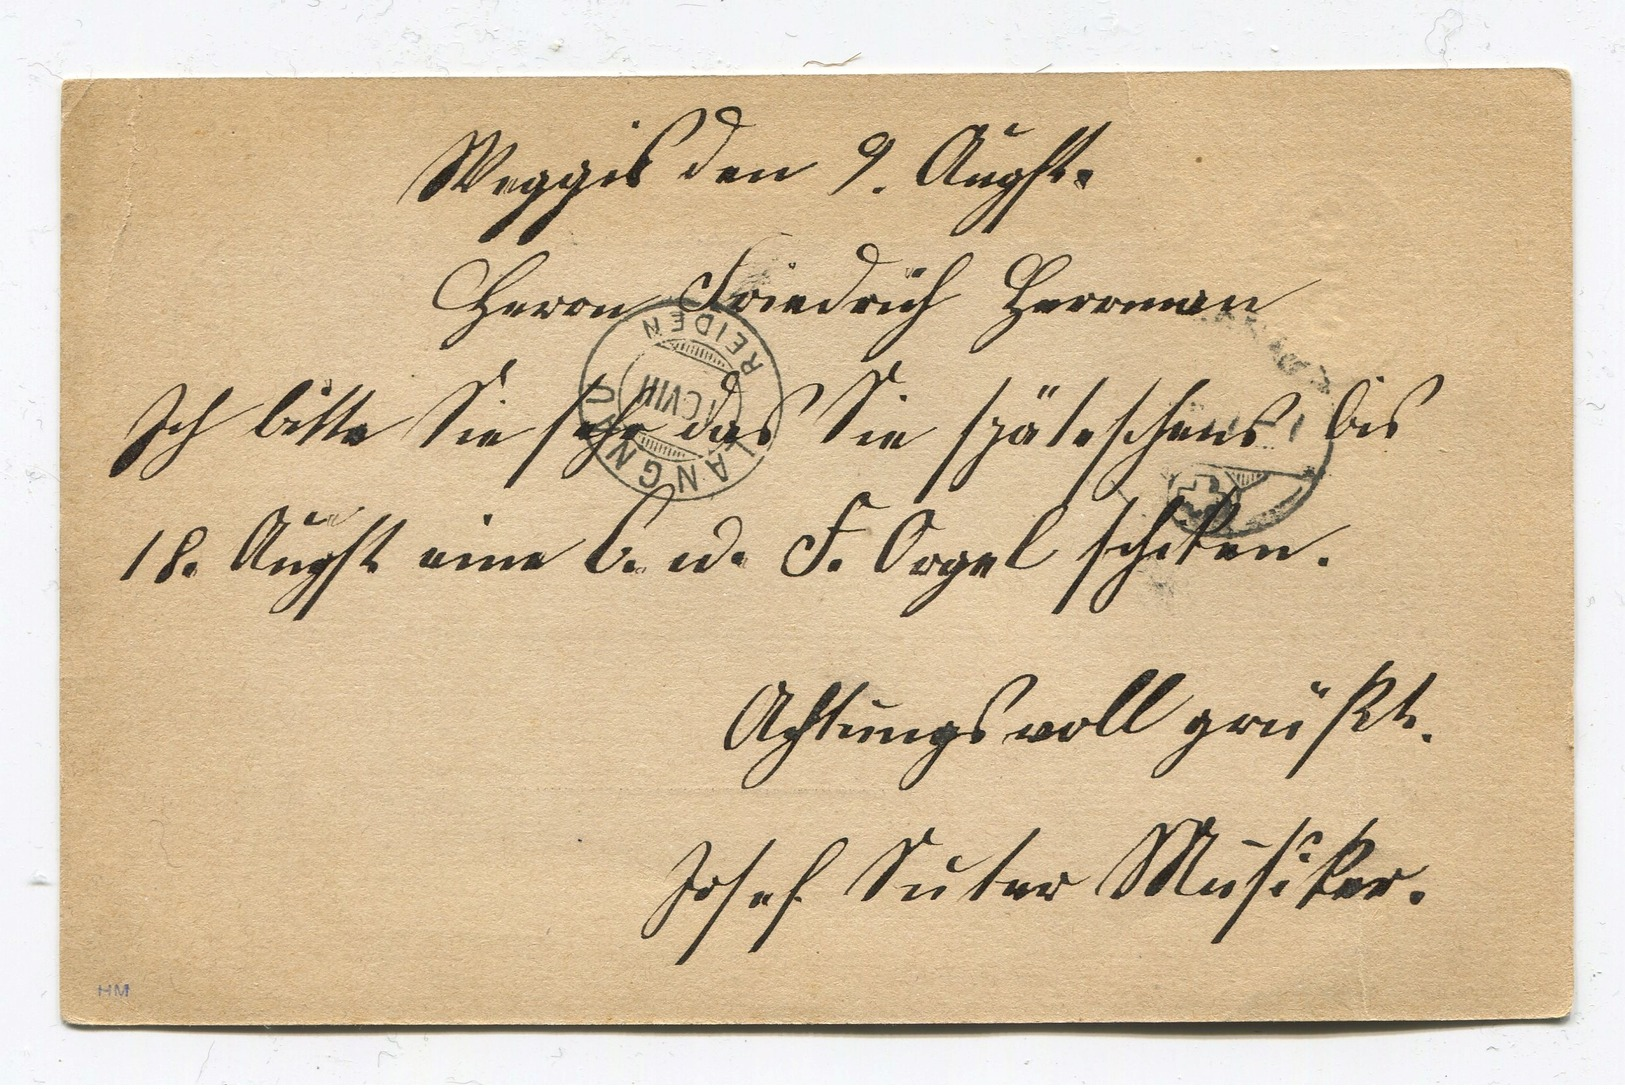 Weggis den 9. Augst.
Herrn Friedrich Herrman
Ich bitte Sie sehr das Sie späteschens bis
18. Augst eine C. u. F. Orgel schiken.
Achtungsvoll grüßt.
Josef Suter Musiker.
REIDEN
LANGNAU
HM